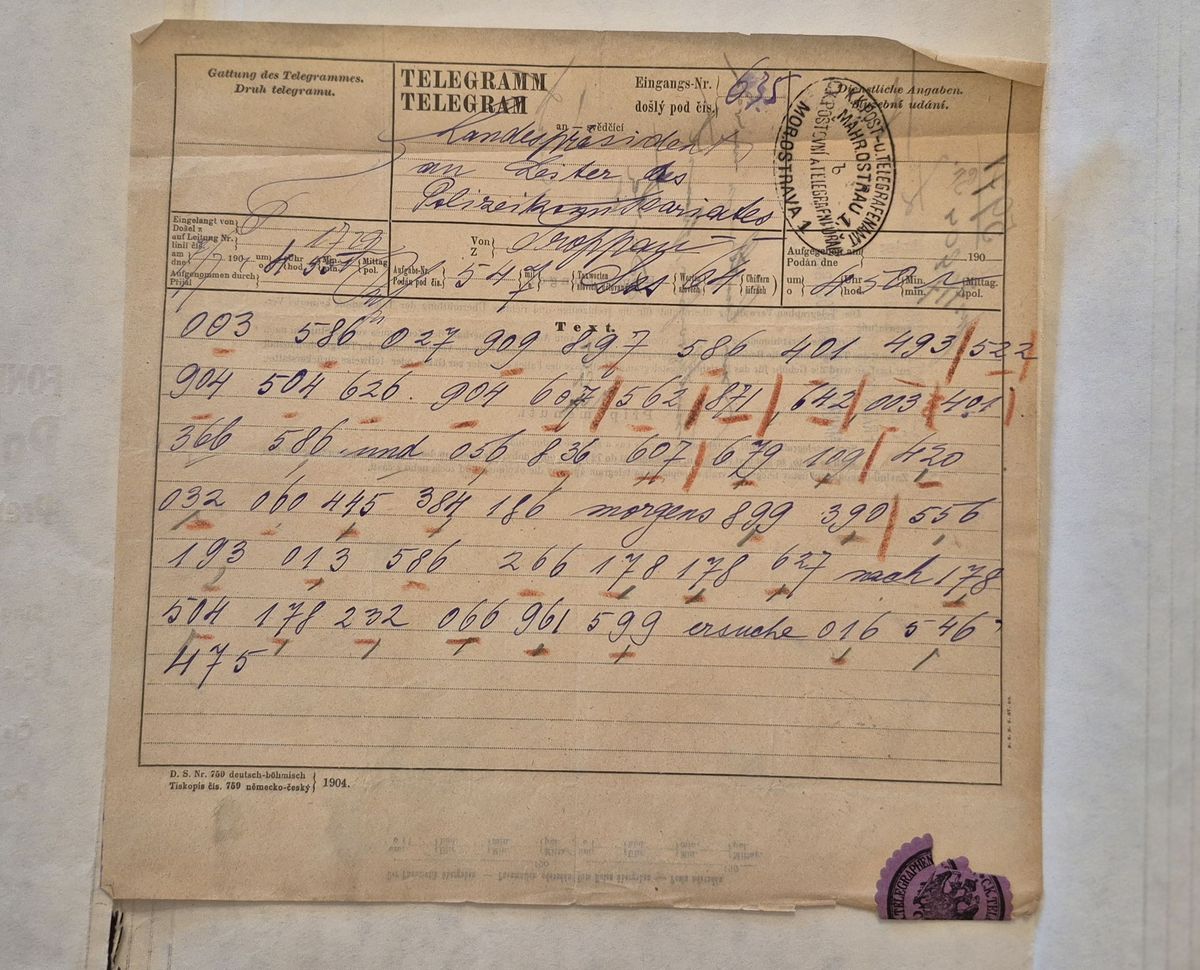 Gattung des Telegrammes.
Druh telegramu.
TELEGRAMM
TELEGRAM
Eingangs-Nr.
došlý pod čís.
635
Dienstliche Angaben.
Služební udání.
K.K. POST- U. TELEGRAFENAMT
MÄHR. OSTRAU 1
b
C.K. POŠTOVNÍ A TELEGRAFNÍ ÚŘAD
MOR. OSTRAVA 1
an
svědčící
Landespräsident
an Leiter des
Polizeikommissariates
Eingelangt von
Došel z
auf Leitung Nr.
linií čís.
am
dne
190
um
o
Uhr
hod.
Min.
min.
Mittag
pol.
Aufgenommen durch
Přijal
Von
Z
Troppau
Aufgabe-Nr.
Podán pod čís.
547
mit
Taxworten
Worten
84
Chiffern
šifrách
Aufgegeben am
Podán dne
190
um
o
4
Uhr
hod.
50
Min.
min.
Mittag.
pol.
Text.
003 586 027 909 897 586 401 493 522
904 504 626 904 607 562 871 642 003 401
366 586 und 056 836 607 679 109 420
032 060 445 384 186 morgens 899 390 556
193 013 586 266 178 178 627 nach 178
504 178 232 066 961 599 ersuche 016 546
475
D. S. Nr. 759 deutsch-böhmisch
Tiskopis čís. 759 německo-český
1904.
TELEGRAPHEN
C.K. TELE